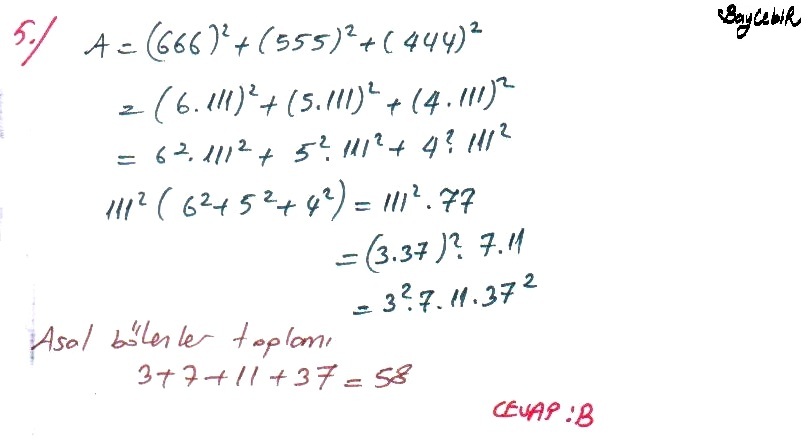 BayCebiR
5./ A = (666)² + (555)² + (444)²
= (6.111)² + (5.111)² + (4.111)²
= 6².111² + 5².111² + 4².111²
111² (6² + 5² + 4²) = 111².77
= (3.37)².7.11
= 3².7.11.37²
Asal bölenler toplamı
3+7+11+37 = 58
CEVAP : B